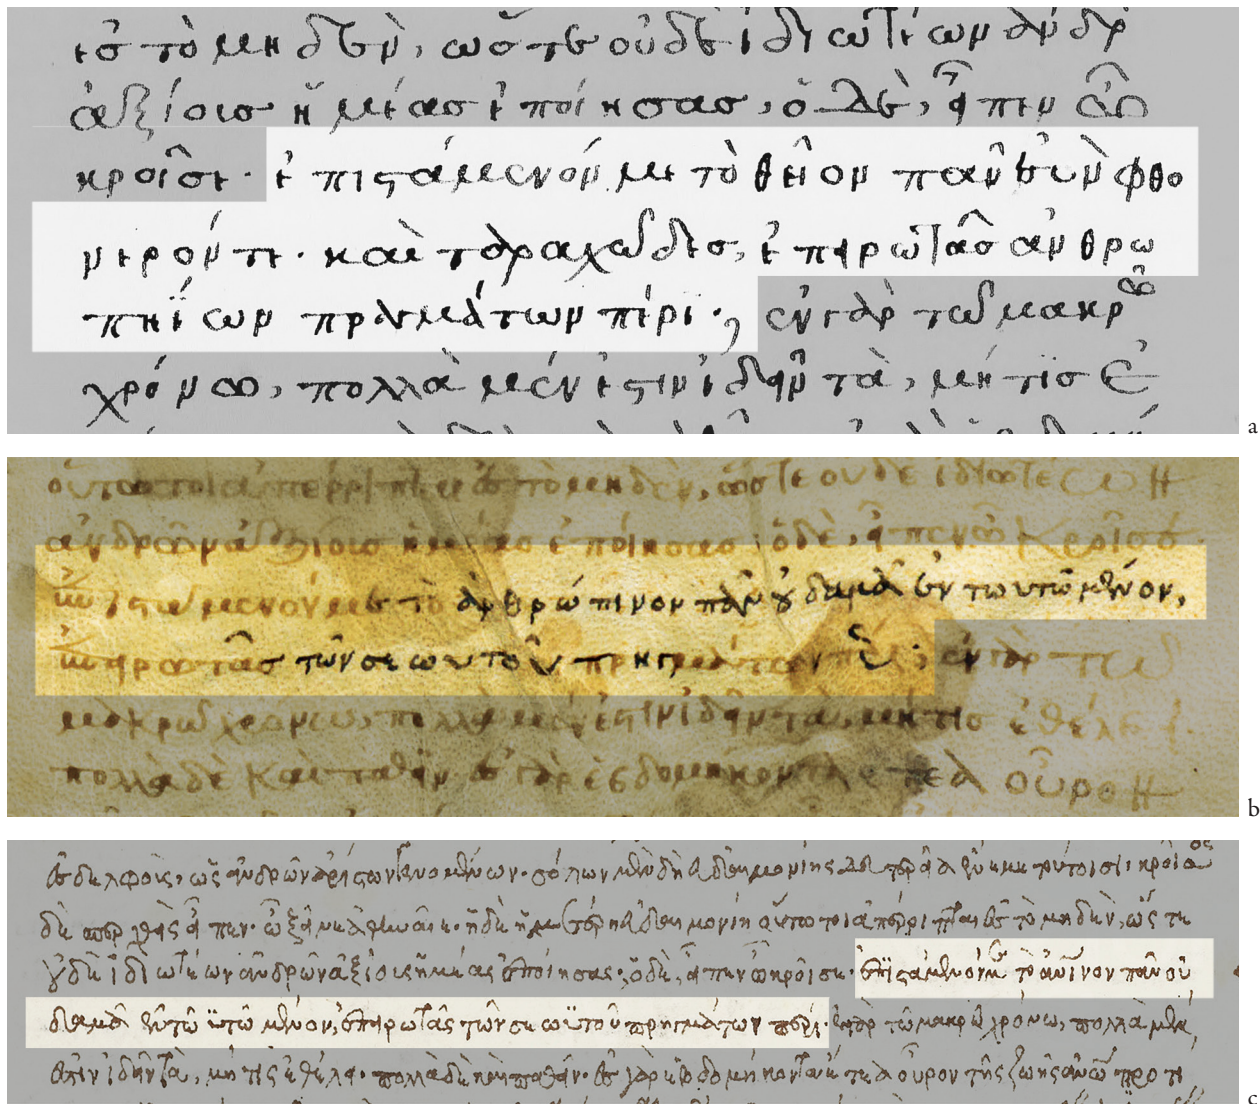 ἐσ τὸ μηδὲν, ὥστε οὐδὲ ἰδιωτέων ἀνδρ
ἀξίουσ ἡμέασ ἐποίησασ, ὁ δὲ, εἶπεν ὦ
κροῖσε· ἐπιστάμενόν με τὸ θεῖον πᾶν ἐὸν φθο
νερόν τε· καὶ ταραχῶδεσ, ἐπειρωτᾶσ ἀνθρω
πηΐων πρηγμάτων πέρι· ἐν γὰρ τῶ μακρῶ
χρόνω, πολλὰ μέν ἐστιν ἰδεῖν τὰ, μή τισ ἐ
a
οὕτω τοι ἀπέρριπται ἐσ τὸ μηδὲν, ὥστε οὐδὲ ἰδιωτέων
ἀνδρῶν ἀξίουσ ἡμέασ ἐποίησασ· ὁ δὲ, εἶπεν ὦ κροῖσε·
ἐπιστάμενόν με τὸ ἀνθρώπινον πᾶν οὐδαμᾶ ἐν τωυτῶ μένον,
ἐπειρωτᾶσ τῶν σεωυτοῦ πρηγμάτων πέρι· ἐν γὰρ τῶ
μακρῶ χρόνω, πολλὰ μέν ἐστιν ἰδεῖν τὰ, μή τισ ἐθέλει·
πολλὰ δὲ καὶ παθεῖν· ἐσ γὰρ ἑβδομήκοντα ἔτεα οὖρον
b
ἐς δελφοὺς, ὡς ἀνδρῶν ἀρίστων γενομένων· σόλων μὲν δὴ εὐδαιμονίης δευτερεῖα ἔνεμε τούτοισι· κροῖσος
δὲ σπερχθεὶς εἶπεν· ὦ ξεῖνε ἀθηναῖε· ἡ δὲ ἡμετέρη εὐδαιμονίη οὕτω τοι ἀπέρριπται ἐς τὸ μηδὲν, ὥς τε
οὐδὲ ἰδιωτέων ἀνδρῶν ἀξίους ἡμέας ἐποίησας; ὁ δὲ, εἶπεν ὦ κροῖσε· ἐπιστάμενόν με τὸ ἀνινον πᾶν οὐ
δαμᾶ ἐν τῶ ϋτῶ μένον, ἐπειρωτᾶς τῶν σεωϋτοῦ πρηγμάτων πέρι· ἐν γὰρ τῶ μακρῶ χρόνω, πολλὰ μέν
ἐστιν ἰδεῖν τὰ, μή τις ἐθέλει· πολλὰ δὲ καὶ παθεῖν· ἐς γὰρ ἑβδομήκοντα ἔτεα οὖρον τῆς ζωῆς
c